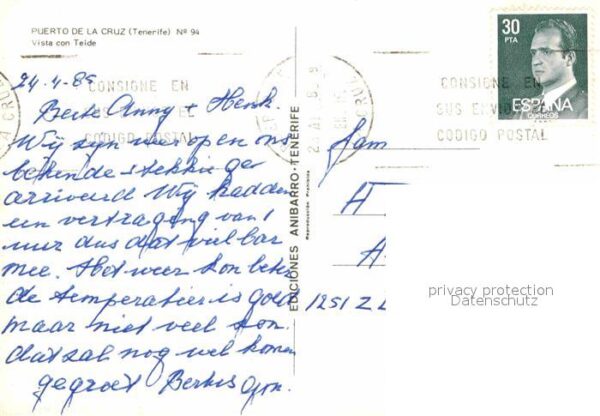 PUERTO DE LA CRUZ (Tenerife) Nº 94
Vista con Teide
24-4-85
Beste Anny + Henk.
Wij zijn weer op en ons
bekende stekkie ge
arriveerd Wij hadden
een vertraging van 1
uur dus dat viel bar
mee. Het weer kon beter
de temperatier is goed
maar niet veel zon.
dat zal nog wel komen
gegroet
EDICIONES ANIBARRO-TENERIFE
CONSIGNE EN
CODIGO POSTAL
30
PTA
ESPAÑA
CORREOS
CONSIGNE EN
SUS ENVIOS EL
CODIGO POSTAL
Fam
A
A
1251 Z
privacy protection
Datenschutz